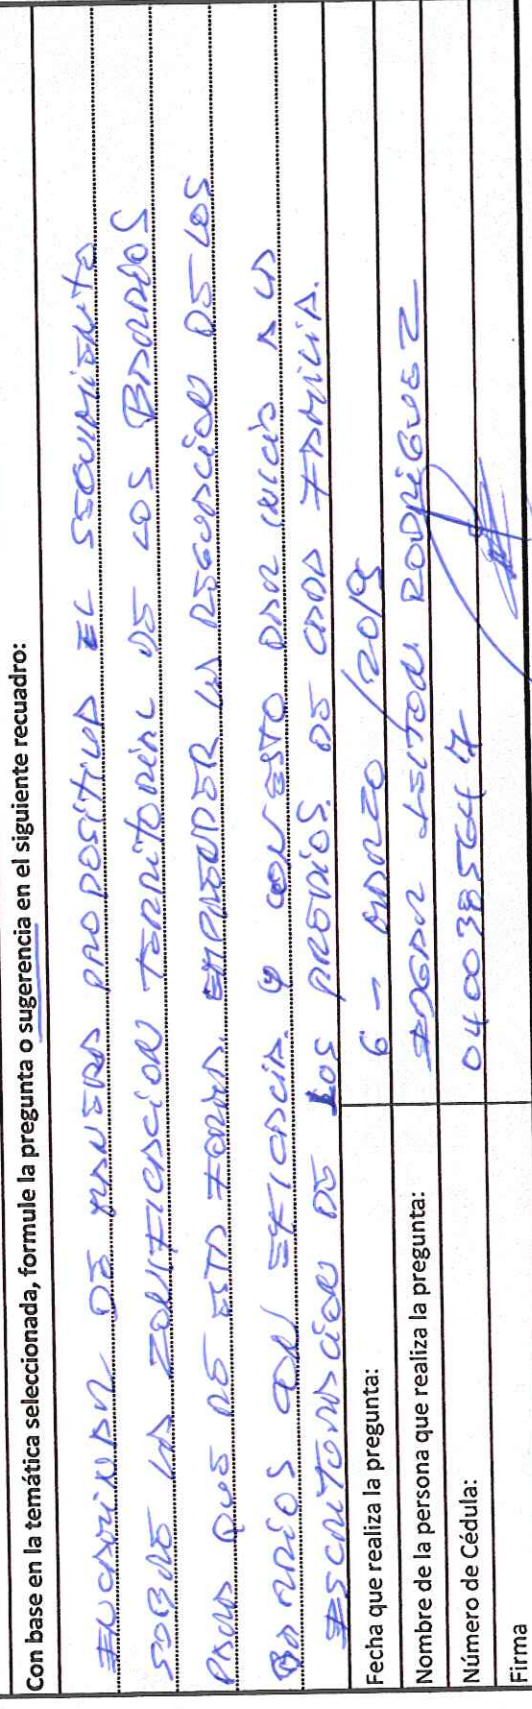 Con base en la temática seleccionada, formule la pregunta o sugerencia en el siguiente recuadro:
ENCAMINAR DE MANERA PROPOSITIVA EL SEGUIMIENTO
SOBRE LA ZONIFICACION TERRITORIAL DE LOS BARRIOS
PARA QUE DE ESTA FORMA EMPRENDER LA REGULACION DE LOS
BARRIOS CON EFICACIA Y CON ESTO DAR INICIO A LA
ESCRITURACION DE LOS PREDIOS DE CADA FAMILIA.
Fecha que realiza la pregunta: 6 - MARZO / 2019
Nombre de la persona que realiza la pregunta: EDGAR RODRIGUEZ
Número de Cédula: 040038564 7
Firma